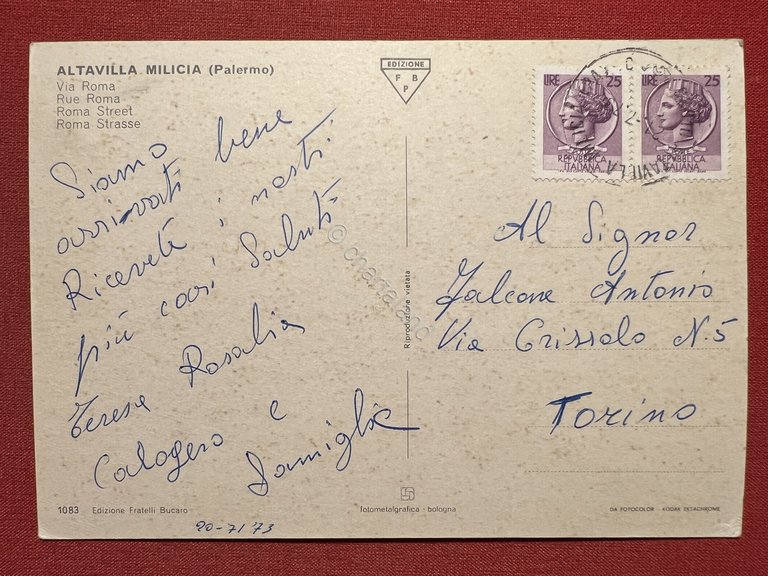 ALTAVILLA MILICIA (Palermo)
Via Roma
Rue Roma
Roma Street
Roma Strasse
EDIZIONE
F B
P
LIRE 25
REPVBBLICA
ITALIANA
LIRE 25
REPVBBLICA
ITALIANA
Siamo bene
arrivati
Ricevete i nostri
più cari Saluti
Teresa Rosalia
Calogero e
Famiglia
Al Signor
Falcone Antonio
Via Crissolo N. 5
Torino
Riproduzione vietata
© charta s.r.l.
1083 Edizione Fratelli Bucaro
20-7/73
fotometalgrafica - bologna
DA FOTOCOLOR - KODAK EKTACHROME